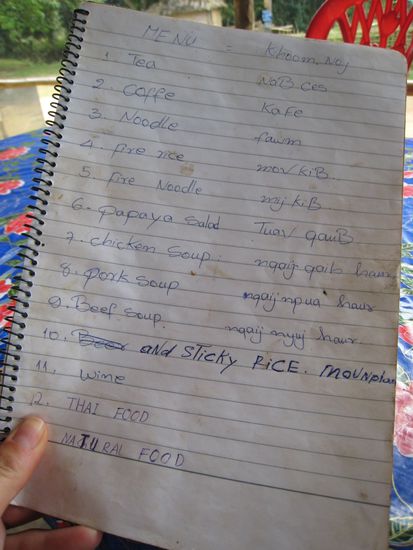 MENU = Khoom Noj
1. Tea NaB ces
2. Coffe Kafe
3. Noodle fawm
4. fire rice mov kiB
5. fire Noodle mij kiB
6. papaya Salad Tuav qauB
7. chicken soup. nqaij qaib hau
8. pork soup nqaij npua hau
9. Beef soup. nqaij nyuj hau
10. Beer and STicky RiCE. MOUN
11. wine
12. THAI FOOD
NATURAL FOOD